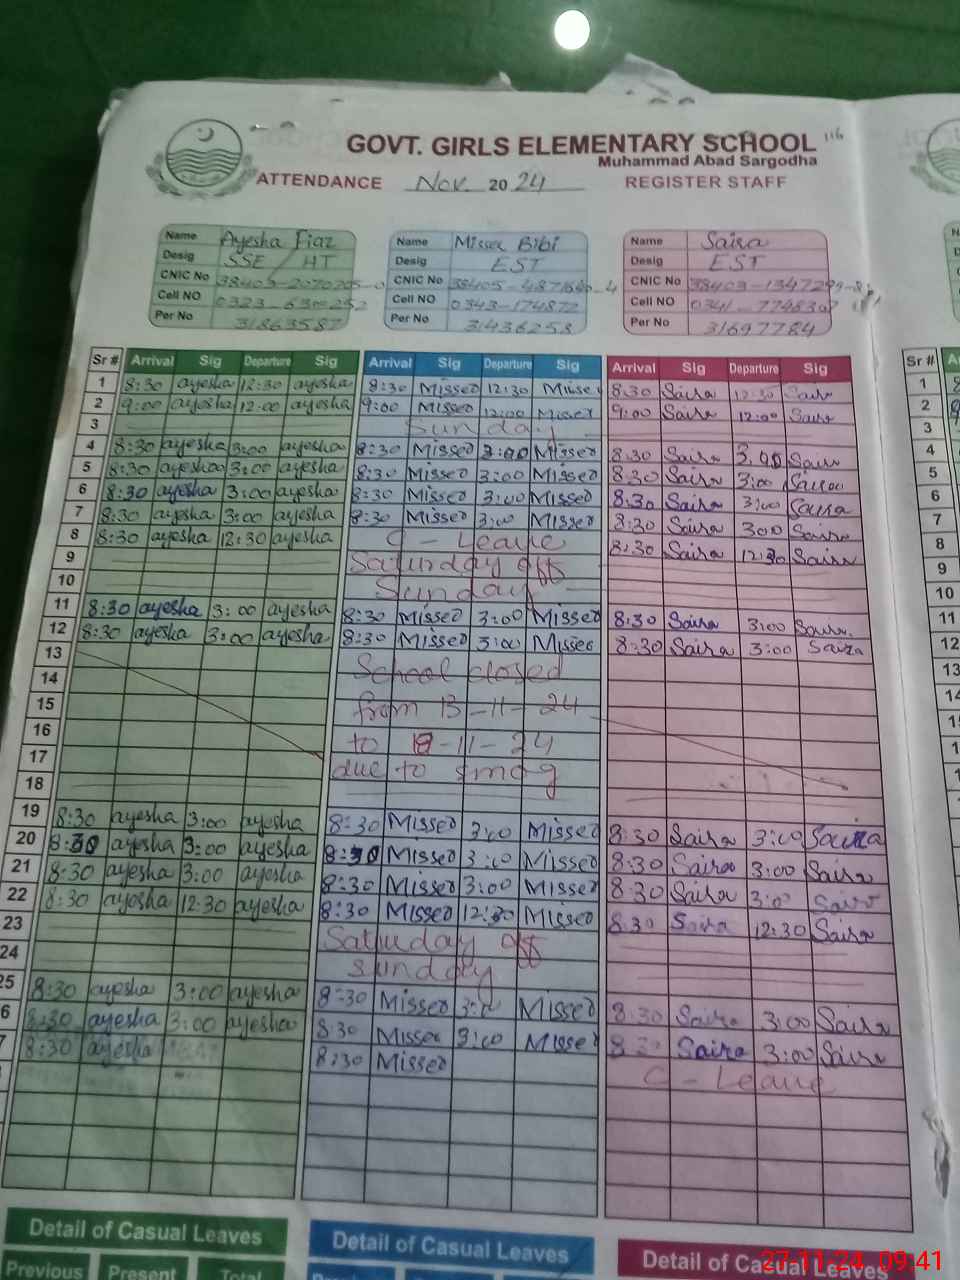 GOVT. GIRLS ELEMENTARY SCHOOL 116
Muhammad Abad Sargodha
ATTENDANCE Nov. 2024 REGISTER STAFF
Name Ayesha Fiaz Name Misser Bibi Name Saira
Desig SSE / HT Desig EST Desig EST
CNIC No CNIC No CNIC No
Cell NO Cell NO 0343-174872 Cell NO
Per No 31863587 Per No 31436258 Per No 31697784
Sr # Arrival Sig Departure Sig Arrival Sig Departure Sig Arrival Sig Departure Sig Sr #
1 8:30 ayesha 12:30 ayesha 8:30 Missed 12:30 8:30 Saira 12:30 Saira 1
2 9:00 ayesha 12:00 ayesha 9:00 Missed 12:00 Missed 9:00 Saira 12:00 Saira 2
3 Sunday 3
4 8:30 ayesha 3:00 ayesha 8:30 Missed 3:00 Missed 8:30 Saira 3:00 Saira 4
5 8:30 ayesha 3:00 ayesha 8:30 Missed 3:00 Missed 8:30 Saira 3:00 Saira 5
6 8:30 ayesha 3:00 ayesha 8:30 Missed 3:00 Missed 8:30 Saira 3:00 Saira 6
7 8:30 ayesha 3:00 ayesha 8:30 Missed 3:00 Missed 8:30 Saira 300 Saira 7
8 8:30 ayesha 12:30 ayesha C - Leave 8:30 Saira 12:30 Saira 8
9 Saturday off 9
10 Sunday 10
11 8:30 ayesha 3:00 ayesha 8:30 Missed 3:00 Missed 8:30 Saira 3:00 Saira 11
12 8:30 ayesha 3:00 ayesha 8:30 Missed 3:00 Missed 8:30 Saira 3:00 Saira 12
13 School closed 13
14 14
15 from 13-11-24 15
16 to 18-11-24
17 due to smog
18
19 8:30 ayesha 3:00 ayesha 8:30 Missed 3:00 Missed 8:30 Saira 3:00 Saira
20 8:30 ayesha 3:00 ayesha 8:30 Missed 3:00 Missed 8:30 Saira 3:00 Saira
21 8:30 ayesha 3:00 ayesha 8:30 Missed 3:00 Missed 8:30 Saira 3:00 Saira
22 8:30 ayesha 12:30 ayesha 8:30 Missed 12:30 Missed 8:30 Saira 12:30 Saira
23 Saturday off
24 Sunday
25 8:30 ayesha 3:00 ayesha 8:30 Missed 3:00 Missed 8:30 Saira 3:00 Saira
6 8:30 ayesha 3:00 ayesha 8:30 Missed 3:00 Missed 8:30 Saira 3:00 Saira
7 8:30 ayesha 8:30 Missed C - Leave
Detail of Casual Leaves Detail of Casual Leaves Detail of Casual Leaves
Previous Present Total
27.11.24 09:41